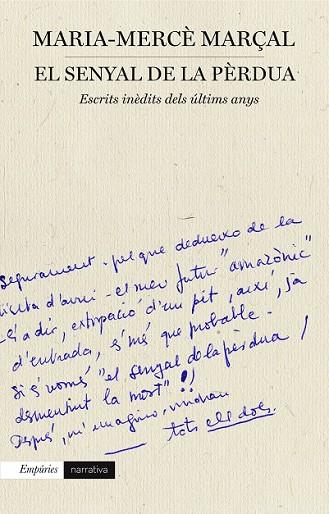 MARIA-MERCÈ MARÇAL
EL SENYAL DE LA PÈRDUA
Escrits inèdits dels últims anys
Segurament - pel que dedueixo de la
visita d'avui - el meu futur "amazònic"
- és a dir, extirpació d'un pit, així, ja
d'entrada, és més que probable.
Si és només "el senyal de la pèrdua /
desmentint la mort"!!
Després, m'imagino, vindran
tots els dos.
Empúries narrativa